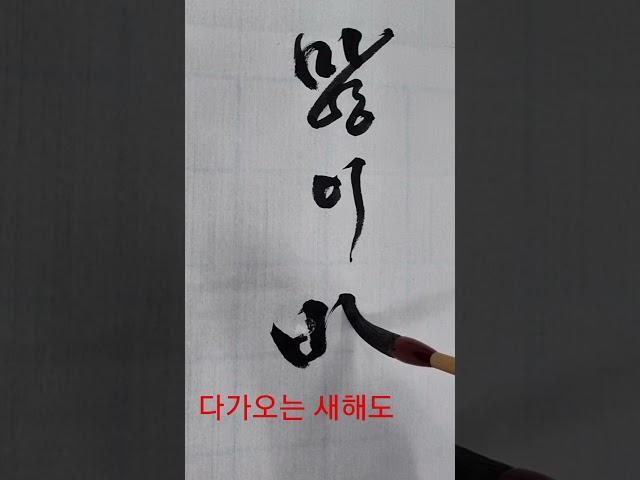 많
이
다가오는 새해도